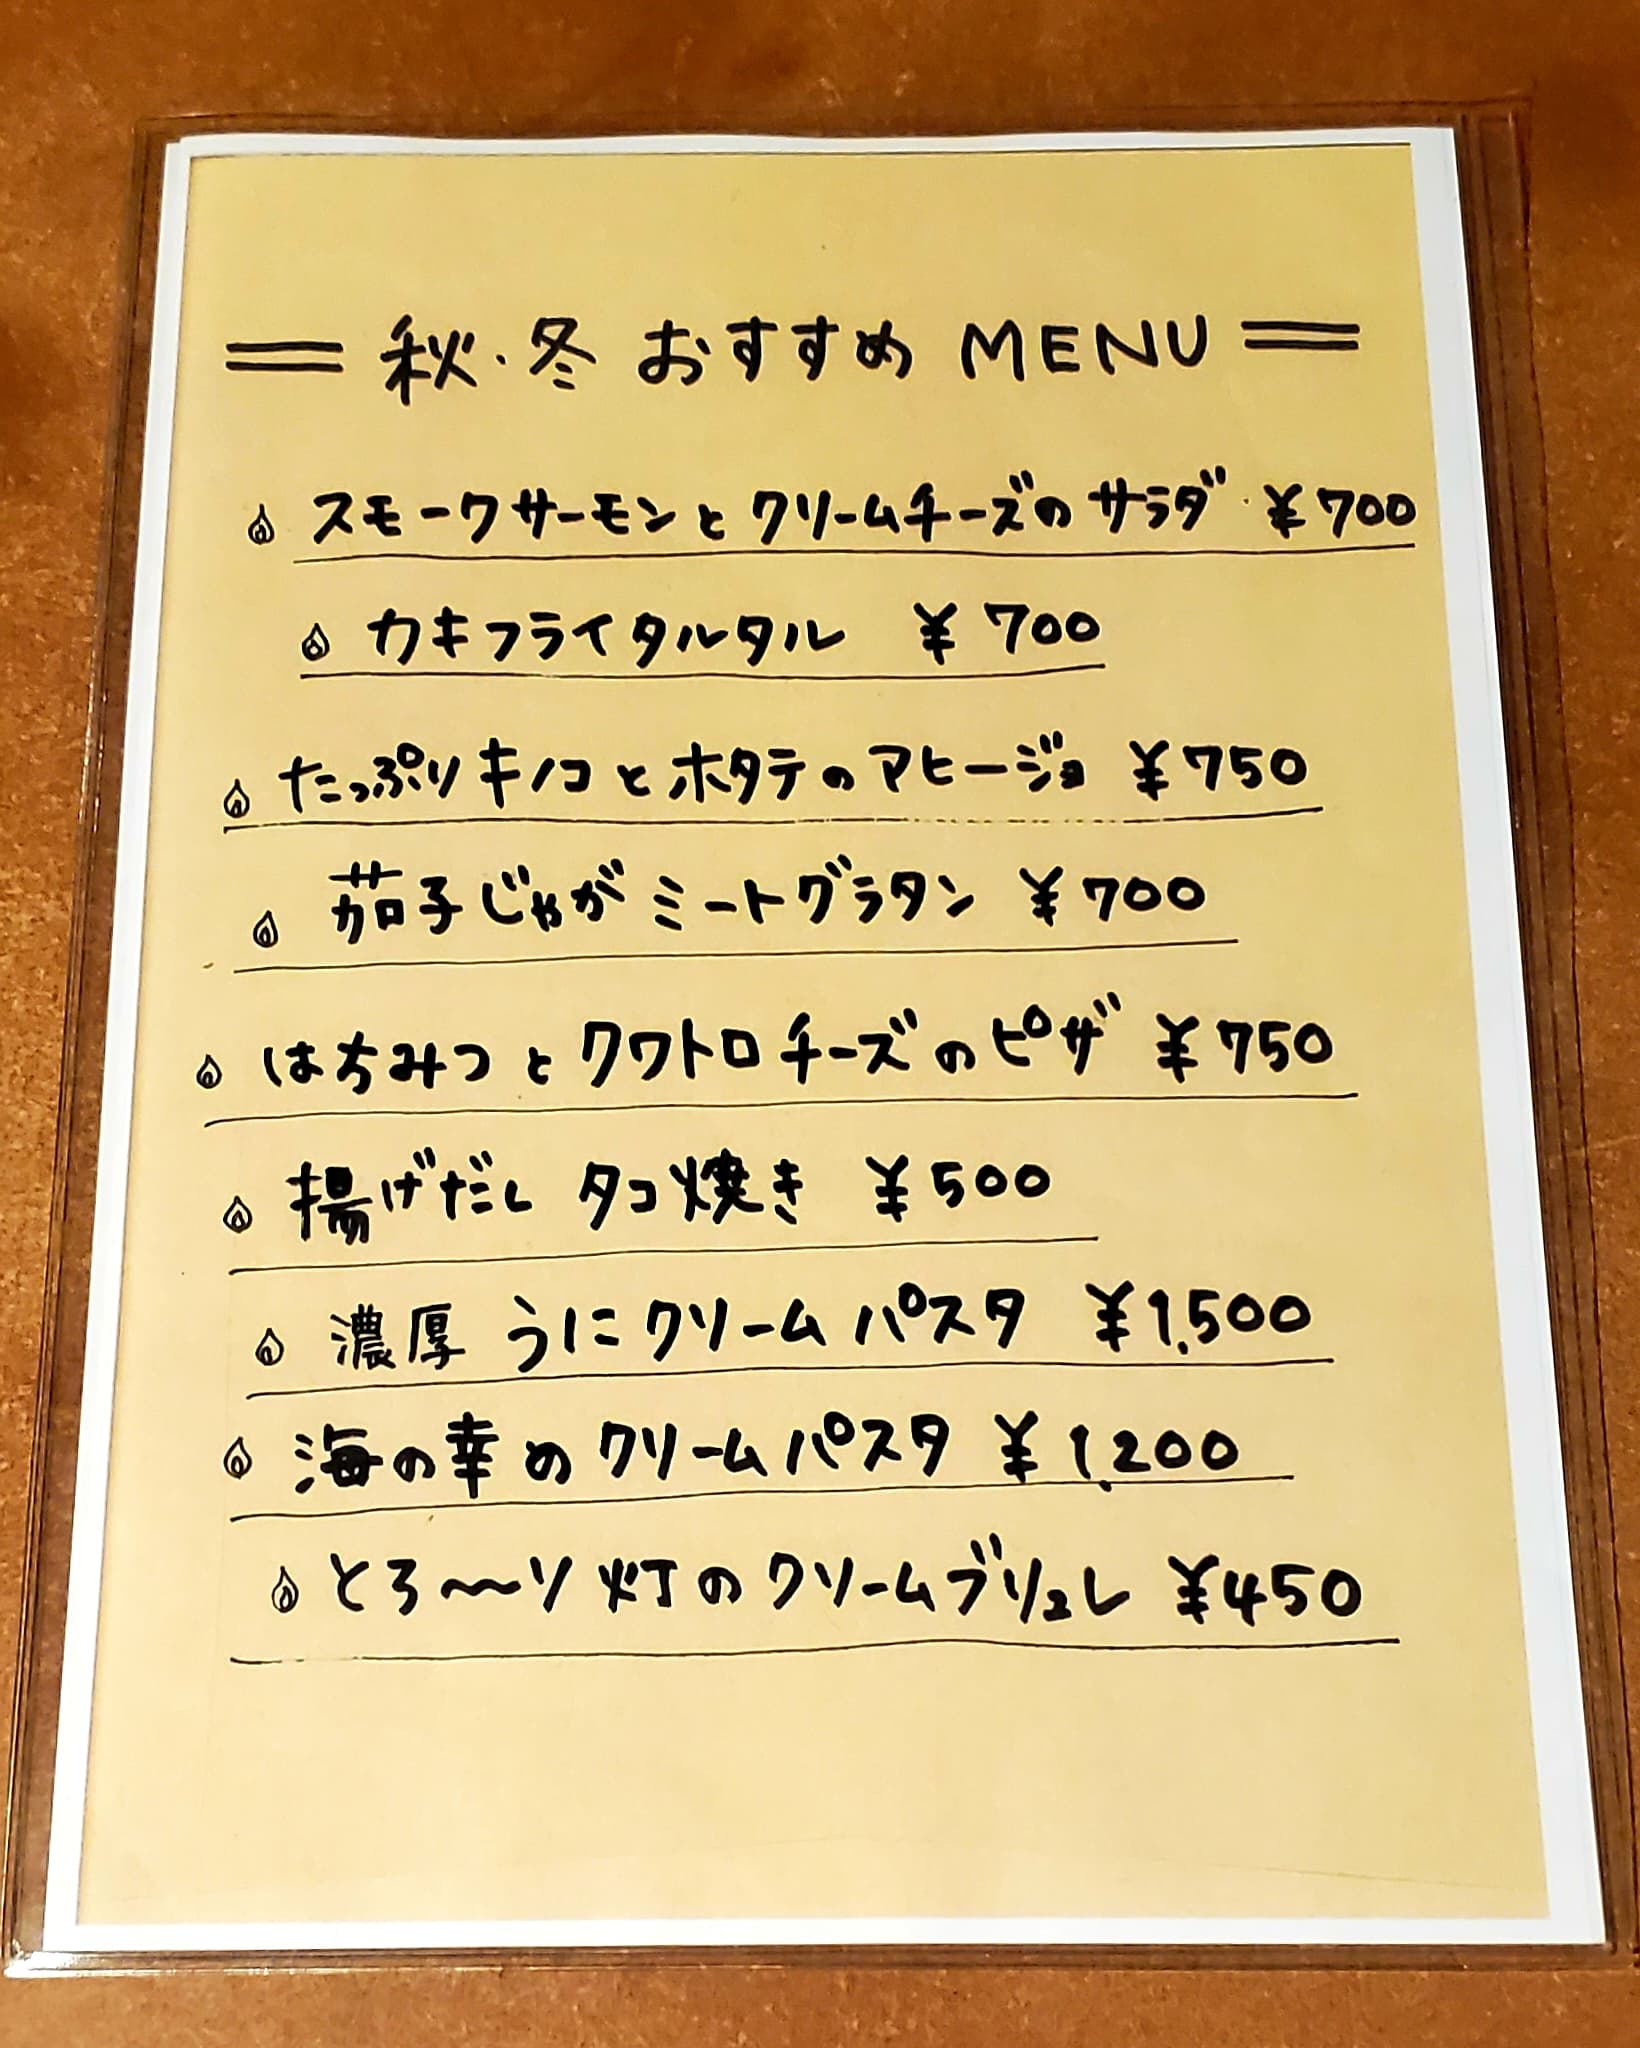 = 秋・冬 おすすめ MENU =
スモークサーモンとクリームチーズのサラダ ¥700
カキフライタルタル ¥700
たっぷりキノコとホタテのアヒージョ ¥750
茄子じゃがミートグラタン ¥700
はちみつとクワトロチーズのピザ ¥750
揚げだしタコ焼き ¥500
濃厚 うにクリームパスタ ¥1,500
海の幸のクリームパスタ ¥1,200
とろ〜〜り灯のクリームブリュレ ¥450